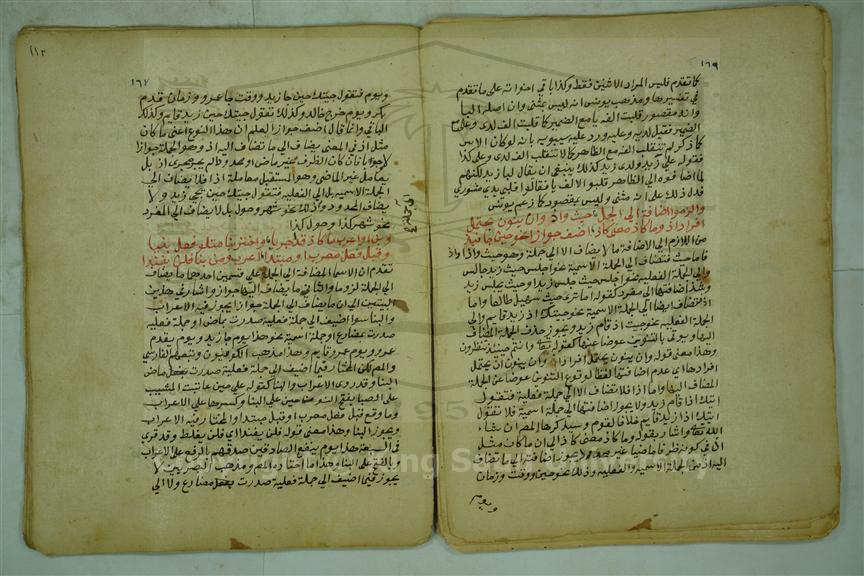 ١٦٩
كما تقدم فليس المراد الاثنين فقط وكذا باقي اخواته على ما تقدم
في تفسيرها ومذهب يونس انه ليس بمثنى وان اصله لبا
وانه مقصور قلبت الفه يا مع الضمير كما قلبت الف لدى وعلى مع
الضمير فقيل لديه وعليه ورد عليه سيبويه بانه لو كان الامر
كما ذكر لم تنقلب الفه مع الظاهر كما لا تنقلب الف لدى وعلى فكما
تقول على زيد ولدى زيد كذلك ينبغي ان يقال لبا زيد لكنهم
لما اضافوه الى الظاهر قلبوا الالف يا فقالوا فلبي يدي مسور
فدل ذلك على انه مثنى وليس بمقصور كما زعم يونس
والزموا اضافة الى الجمل حيث واذ وان ينون يحتمل
افراد اذ وما كاذ معنى كاذ اضف جوازا نحو حين جا نبذ
من اللازم الى الاضافة ما لا يضاف الا الى جملة وهو حيث واذ واذا
فاما حيث فتضاف الى الجملة الاسمية نحو اجلس حيث زيد جالس
والى الجملة الفعلية نحو اجلس حيث جلس زيد او حيث يجلس زيد
وشذ اضافتها الى مفرد كقوله اما ترى حيث سهيل طالعا واما
اذ فتضاف ايضا الى الجملة الاسمية نحو جيتك اذ زيد قايم والى
الجملة الفعلية نحو جيت اذ قام زيد ويجوز حذف الجملة المضاف
اليها ويوتى بالتنوين عوضا عنها كقوله تعالى وانتم حينئذ تنظرون
وهذا معنى قوله وان ينون يحتمل افراد اذ وان ينون اذ يحتمل
افرادها اي عدم اضافتها لفظا لوقوع التنوين عوضا عن الجملة
المضاف اليها واما اذا فلا تضاف الا الى جملة فعلية فتقول
اتيك اذا قام زيد ولا يجوز اضافتها الى جملة اسمية فلا تقول
اتيك اذا زيد قايم خلافا لقوم وسيذكرها المص ان شاء
الله تعالى واشار بقوله وما كاذ معنى كاذ الى ان ما كان مثل
اذ في كونه ظرفا ماضيا غير محدود يجوز اضافته الى ما تضاف
اليه اذ من الجملة الاسمية والفعلية وذلك نحو حين ووقت وزمان
ويوم
١١٢
١٦٧
ويوم فتقول جيتك حين جا زيد ووقت جا عمرو وزمان قدم
بكر ويوم خرج خالد وكذلك تقول جيتك حين زيد قايم وكذلك
الباقي وانما قال اضف جوازا ليعلم ان هذا النوع اعني ما كان
مثل اذ في المعنى يضاف الى ما تضاف اليه اذ وهو الجملة جوازا
لا وجوبا فان كان الظرف غير ماض او محدود لم يجر مجرى اذ بل
يعامل غير الماضي وهو المستقبل معاملة اذا فلا يضاف الى
الجملة الاسمية بل الى الفعلية فتقول جيتك حين يجي زيد ولا
يضاف المحدود وذلك نحو شهر وحول بل لا يضاف الى المفرد
نحو شهر كذا وحول كذا
وابن او اعرب ما كاذ قد اجريا واختر بنا متلو فعل بنيا
وقبل فعل معرب او مبتدا اعرب ومن بنا فلن يفندا
تقدم ان الاسما المضافة الى الجملة على قسمين احدهما ما يضاف
الى الجملة لزوما والثاني ما يضاف اليها جوازا واشار في هذين
البيتين الى ان ما يضاف الى الجملة جوازا يجوز فيه الاعراب
والبنا سوا اضيف الى جملة فعلية صدرت بماض او جملة فعلية
صدرت بمضارع او جملة اسمية نحو هذا يوم جا زيد ويوم يقدم
عمرو ويوم عمرو قايم وهذا مذهب الكوفيين وتبعهم الفارسي
والمص لكن المختار فيما اضيف الى جملة فعلية صدرت بفعل ماض
البنا وقد روي الاعراب والبنا كقوله على حين عاتبت المشيب
على الصبا بفتح النون من حين على البنا وكسرها على الاعراب
وما وقع قبل فعل معرب او قبل مبتدا والمختار فيه الاعراب
ويجوز البنا وهذا معنى قوله فلن يفندا اي فلن يغلط وقد قري
في السبعة هذا يوم ينفع الصادقين صدقهم بالرفع على الاعراب
وبالفتح على البنا وهذا ما اختاره المص ومذهب البصريين لا
يجوز فيما اضيف الى جملة فعلية صدرت بفعل مضارع ولا الى